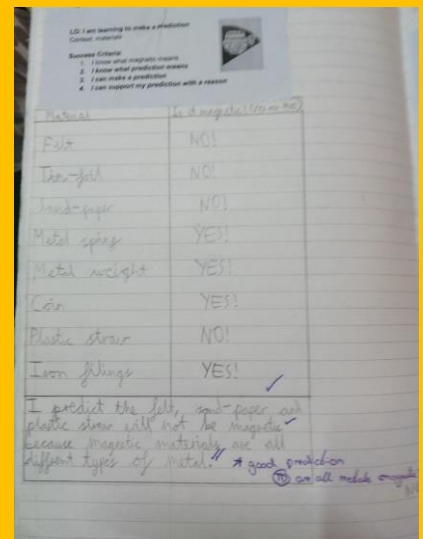 LO: I am learning to make a prediction
Context: materials
Success Criteria:
1. I know what magnetic means
2. I know what prediction means
3. I can make a prediction
4. I can support my prediction with a reason
Material Is it magnetic? (Yes or No)
Felt NO!
Tin-foil NO!
Sand-paper NO!
Metal spring YES!
Metal weight YES!
Coin YES!
Plastic straw NO!
Iron filings YES!
I predict the felt, sand-paper and
plastic straw will not be magnetic
because magnetic materials are all
diffrent types of metal.
good prediction
are all metals magnetic